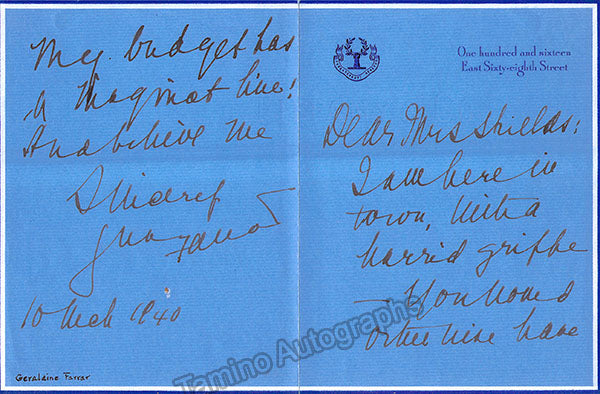 My budget has
a Maginot line!
And believe me
Sincerely
Farrar
10 Mch 1940
Geraldine Farrar
One hundred and sixteen
East Sixty-eighth Street
Dear Mrs Shields:
I am here in
town, with a
horrid grippe
— You would
otherwise have
Tamino Autographs